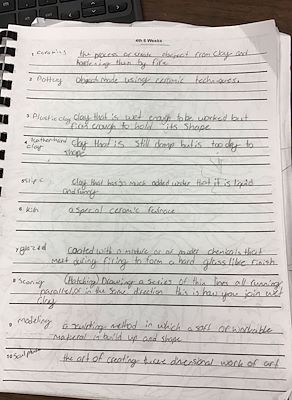 4th 6 Weeks
1. ceramics the process or create abstract from clay and
hardening then by fire
2 Pottery Objects made using ceramic techniques.
3 Plastic clay Clay that is wet enough to be worked but
firm enough to hold its shape
4 leatherhard clay that is still damp but is too dry to
clay shape
5 slip clay that has so much added water that it is liquid
and runny.
6 kiln a special ceramic furnace
7 glazed Coated with a mixture or of powder chemicals that
melt during firing to form a hard glass like finish
8 scoring (Hatching) Drawing a series of thin lines all running
parallel, or in the same direction this is how you join wet
clay
9 modeling a sculpting method in which a soft or workable
material is build up and shape
10 Sculpture the art of creating three dimensional work of art